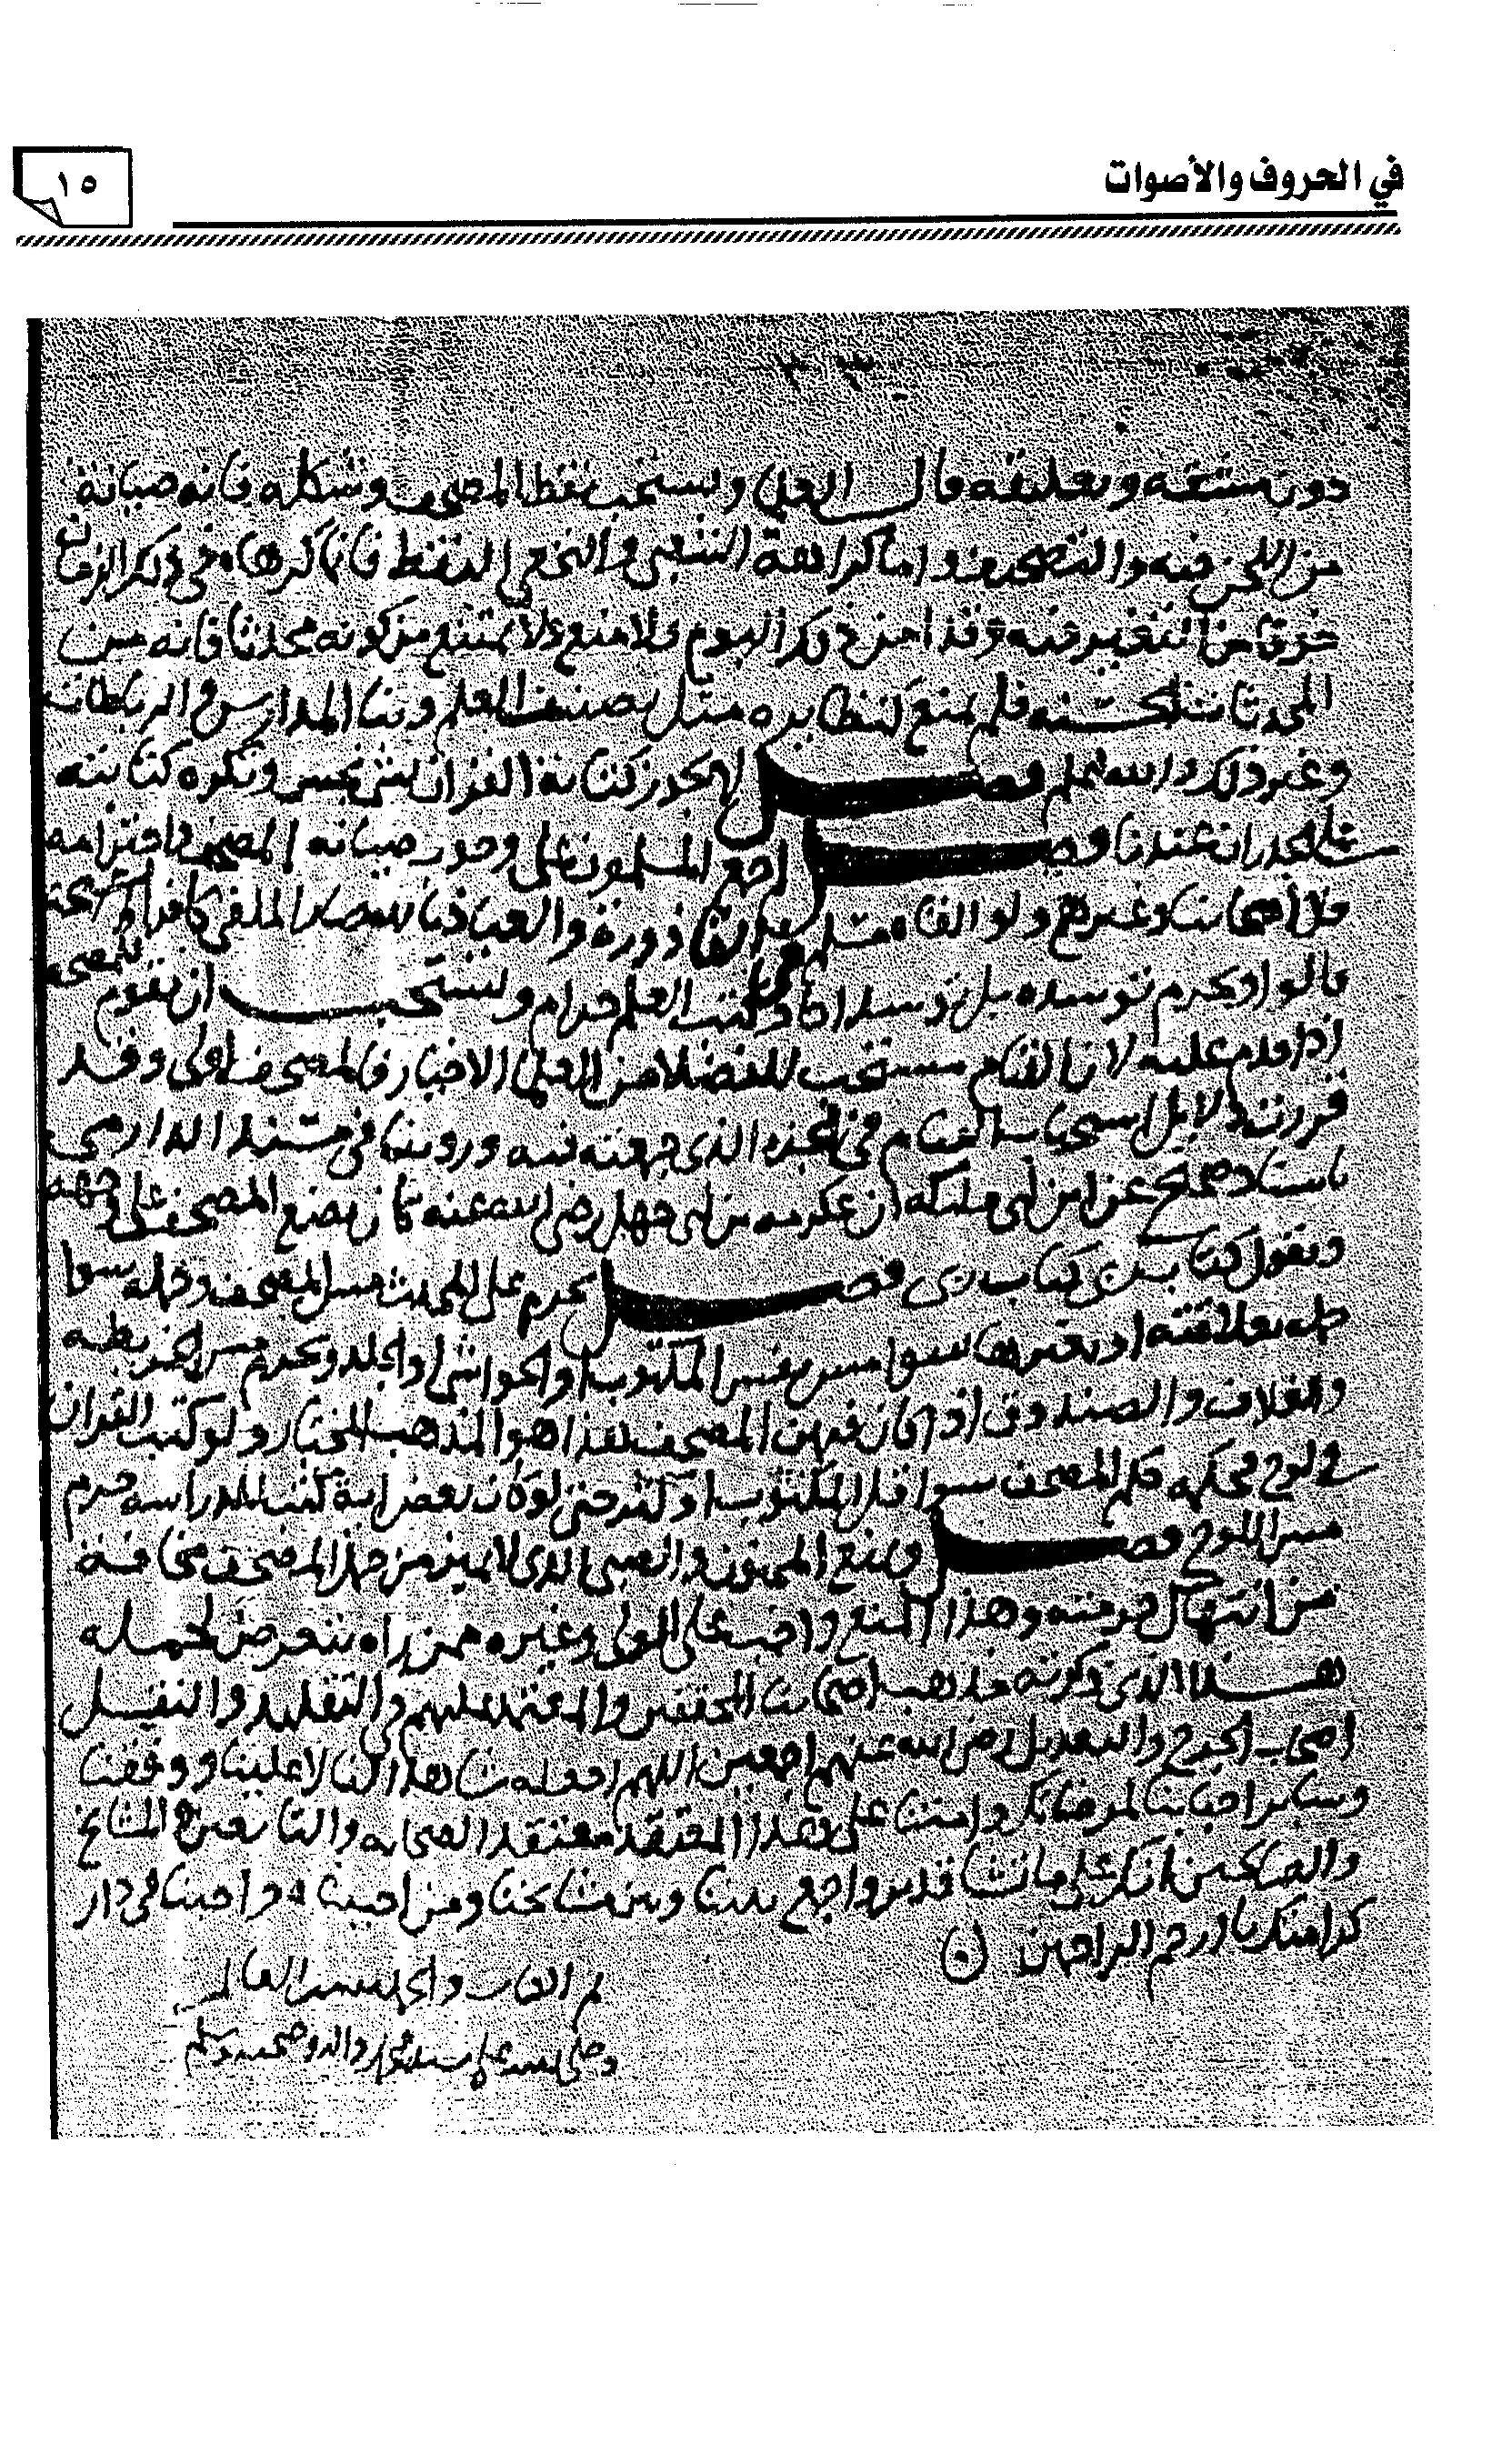 في الحروف والأصوات
١٥
دون مشقه وتعليقه قال العلما ويستحب نقط المصحف وشكله فانه صيانة
من اللحن فيه والتصحيف واما كراهة الشعبي والنخعي النقط فانما كرهاه في ذلك الزمان
خوفا من التغيير فيه وقد امن ذلك اليوم فلا منع ولا يمتنع من كونه محدثا فانه من
المحدثات الحسنه فلم يمنع كنظايره مثل تصنيف العلم وبنا المدارس والرباطات
وغير ذلك والله اعلم فصل لا يجوز كتابة القران بشي نجس وتكره كتابته
على الجدران عندنا فصل اجمع المسلمون على وجوب صيانه المصحف واحترامه
قال اصحابنا وغيرهم ولو القاه مسلم في القاذورة والعياذ بالله صار الملقي كافرا
قالوا ويحرم توسده بل توسد احاد كتب العلم حرام ويستحب ان يقوم للمصحف
اذا قدم عليه لان القيام مستحب للفضلا من العلما الاخيار فالمصحف اولى وقد
قررت دلايل استحباب القيام في الجزء الذي جمعته فيه وروينا في مسند الدارمي
باسناد صحيح عن ابن ابي مليكه ان عكرمه بن ابي جهل رضي الله عنه كان يضع المصحف على وجهه
ويقول كتاب ربي كتاب ربي فصل يحرم على المحدث مس المصحف وحمله سوا
حمله بعلاقته او بغيرها سوا مس نفس المكتوب او الحواشي او الجلد ويحرم مس الخريطه
والغلاف والصندوق اذا كان فيهن المصحف هذا هو المذهب المختار ولو كتب القران
في لوح فحكمه حكم المصحف سوا قل المكتوب او كثر حتى لو كان بعض اية كتب للدراسه حرم
مس اللوح فصل ويمنع المجنون والصبي الذي لا يميز من حمل المصحف مخافة
من انتهاك حرمته وهذا المنع واجب على الولي وغيره ممن راه يتعرض لحمله
هذا الذي ذكرته مذهب اصحابنا المحققين والمعتمد عليهم في التقليد والنقل
اصحاب الجرح والتعديل رضي الله عنهم اجمعين اللهم اجعله شاهدا لنا لا علينا ووفقنا
وساير احبابنا لمرضاتك وامتنا على هذا المعتقد معتقد الصحابه والتابعين والمشايخ
والصالحين انك على ما تشا قدير واجمع بيننا وبين مشايخنا ومن احببناه واحبنا في دار
كرامتك يا ارحم الراحمين
تم الكتاب والحمد لله رب العالمين
وصلى الله على سيدنا محمد واله وصحبه وسلم